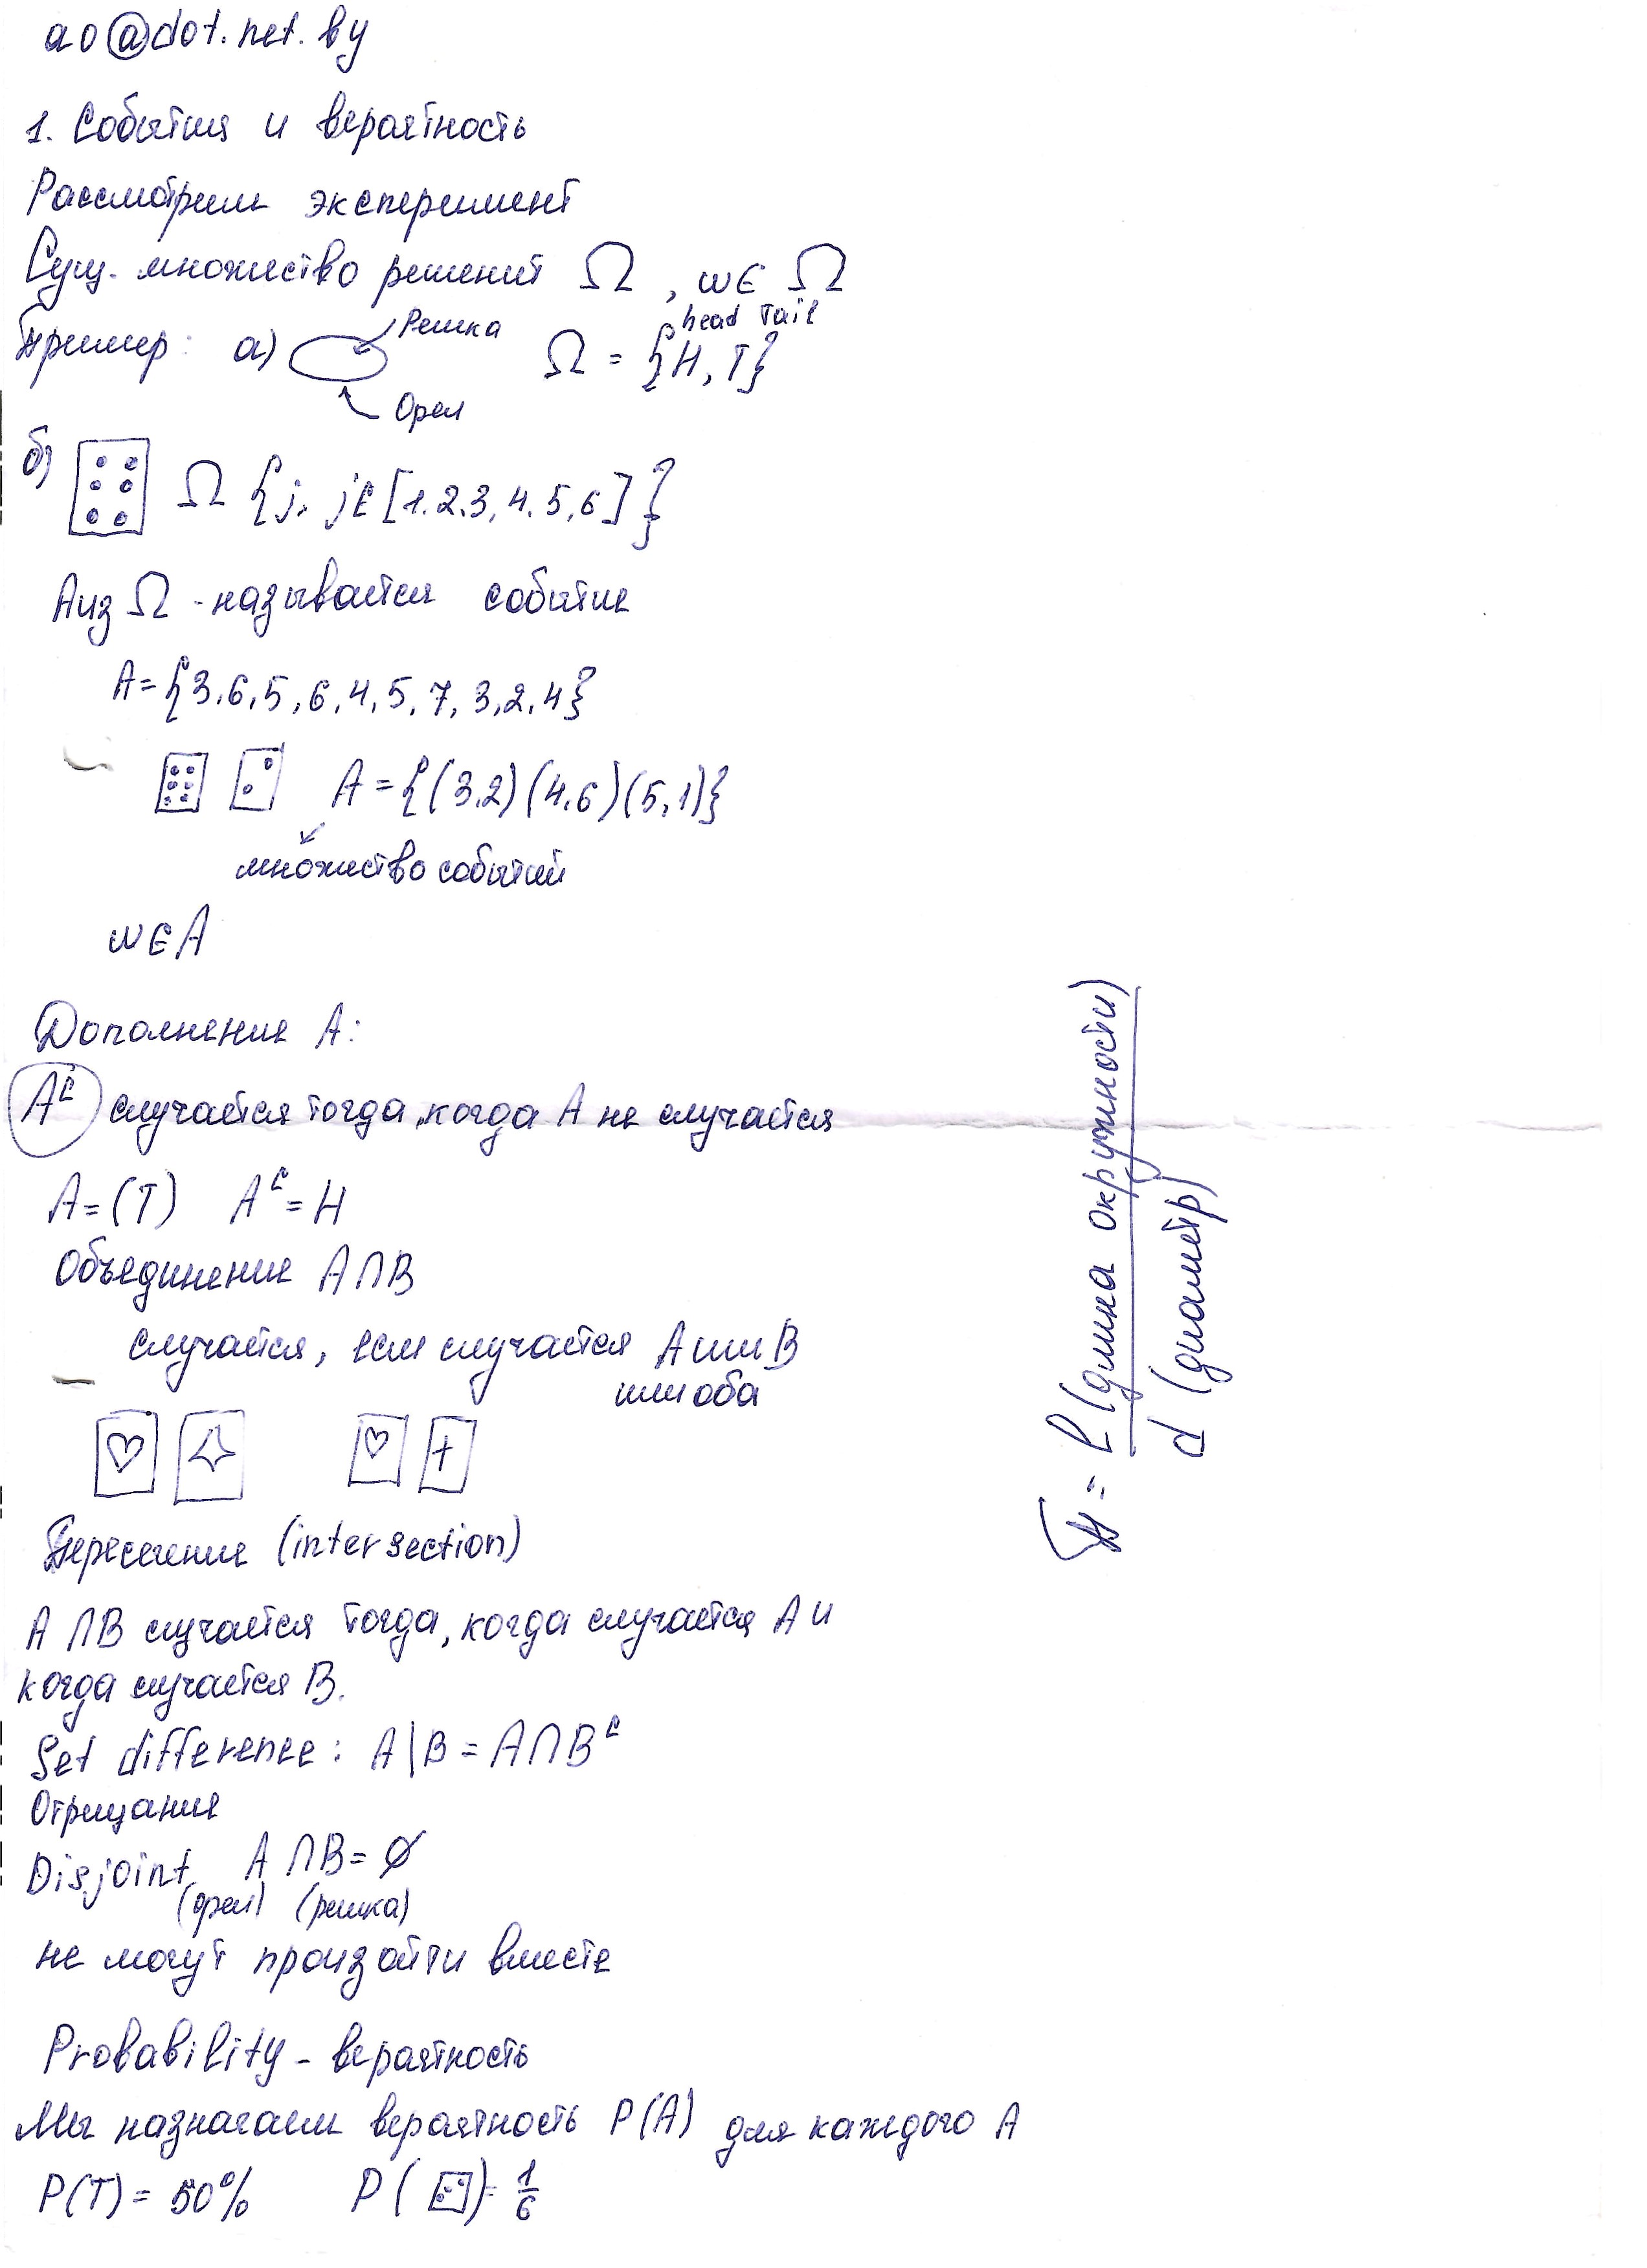 ao@dot.net.by
1. События и вероятность
Рассмотрим эксперимент
Сущ. множество решений Ω, ω∈ Ω
Пример: а) Решка Ω = {H, T}
head Tail
Орел
б) Ω {j, j∈ [1.2.3, 4. 5, 6] }
A из Ω - называется событие
A = {3.6.5, 6.4.5.7.3.2.4}
A = {(3.2) (4.6) (5,1)}
множество событий
ω∈A
Дополнение A:
Aᶜ случается тогда, когда A не случается
A=(T) Aᶜ= H
Объединение A∩B
случается, если случается A или B
или оба
Пересечение (intersection)
A ∩B случается тогда, когда случается A и
когда случается B.
Set difference: A|B = A∩Bᶜ
Отрицания
Disjoint A ∩B= Ø
(орел) (решка)
не могут произойти вместе
Probability - вероятность
Мы назначаем вероятность P(A) для каждого A
P(T) = 50% P( )= 1/6
= l (длина окружности)
d (диаметр)